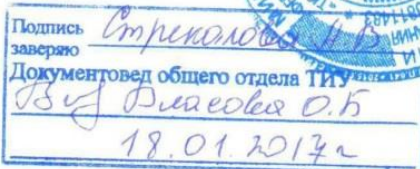 Подпись Стрекалова Н.В
заверяю
Документовед общего отдела ТИУ
Власова О.Б
18.01.2017г